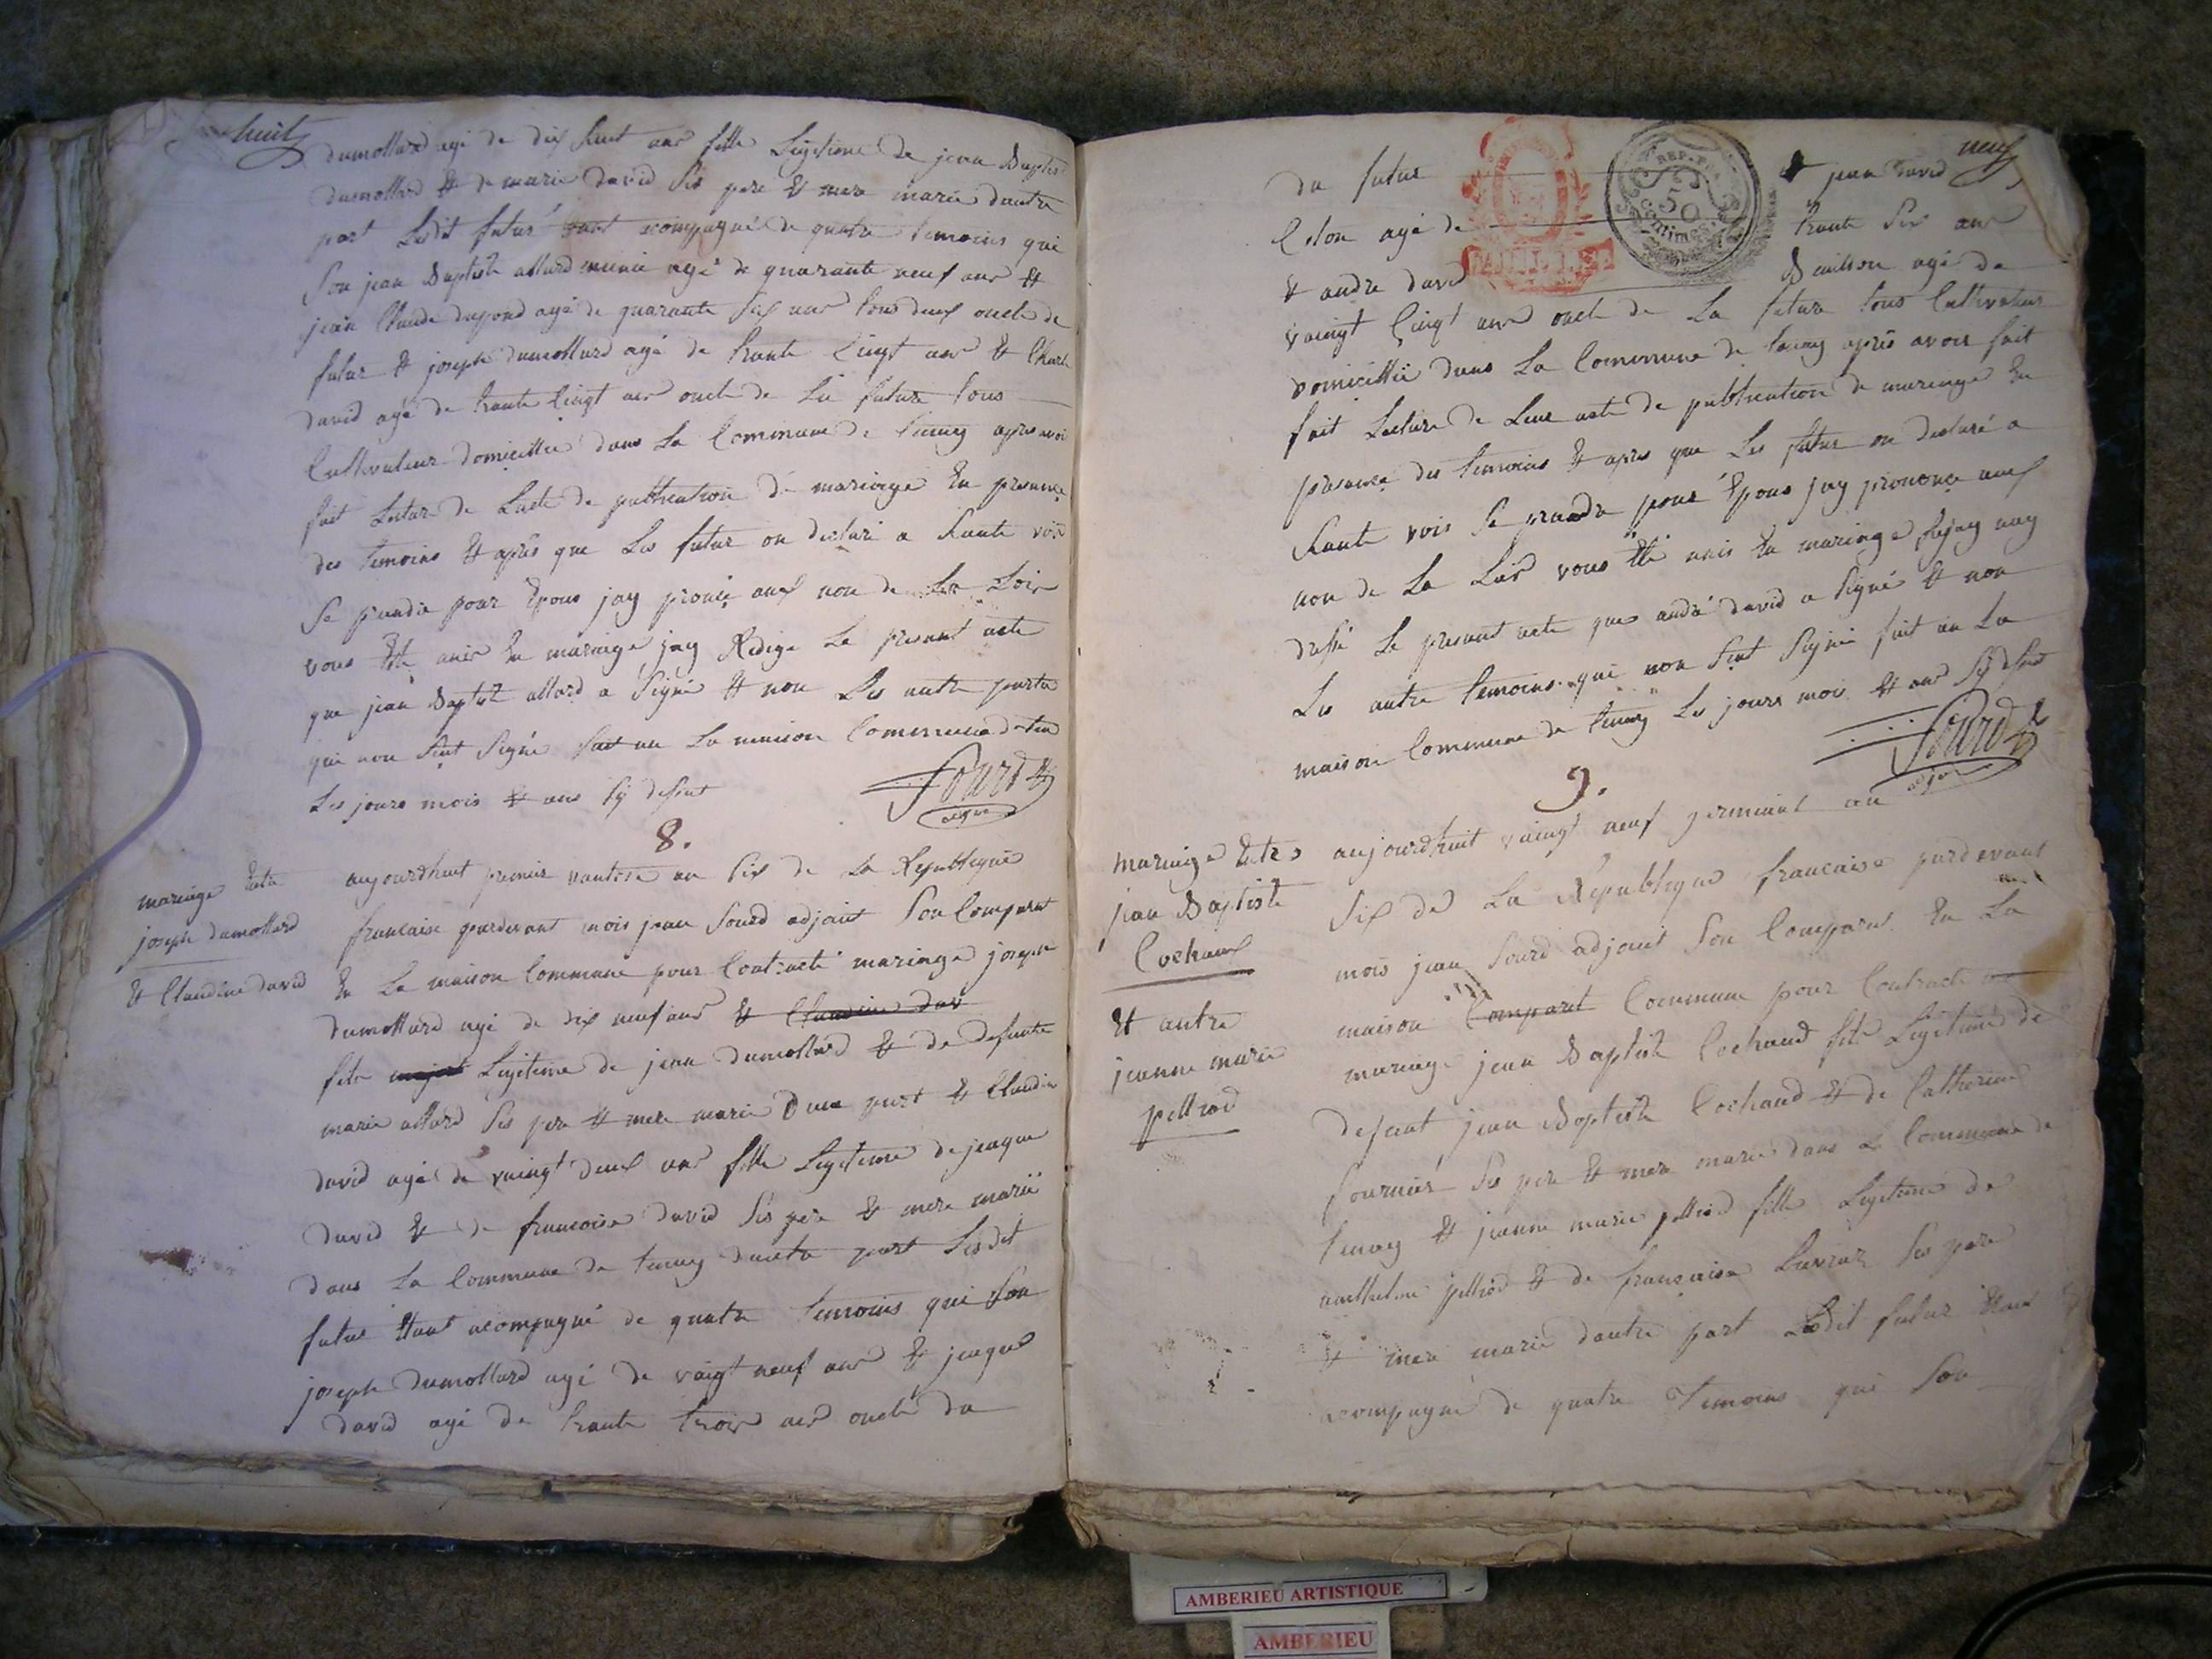 huit
dumollard agé de dix huit ans fille Legitime de jean Baptis
dumollard & de marie david Ses pere & mere marie dautre
part Lesdit futur etant acompagné de quatre temoins qui
Son jean Baptiste allard munié agé de quarante neuf ans &
jean Claude dupond agé de quarante Six ans tous deux oncle de
futur & joseph dumollard agé de trante Cinqt ans & Charle
david agé de trante Cinqt ans oncle de La future tous
Cultivateur domicillié dans La Commune de tenay apres avoi
fait Lecture de Lacte de publication de mariage En presance
des temoins & après que Les futur on declaré a haute vois
Se prandre pour Epous jay pronè auf non de La Loix
vous Ete unis En mariage jay Redige Le presant acte
que jean Baptiste allard a Signé & non Les autre partie
qui non Seut Signé fait an La maison Commune de ten
Les jours mois & ans Sÿ desut
Sourd
adjoin
8.
mariage Entre
joseph dumollard
& Claudine david
aujourdhuit premier vantose an Six de La Republique
francaise pardevant mois jean Sourd adjoint Son Comparut
En La maison Commune pour Contracté mariage joseph
dumollard agé de dix neuf ans & Claudine dav
fils major Legitime de jean dumollard & de defunte
marie allard Ses pere & mere marie dune part & Claudine
david agé de vaingt deux ans fille Legitime de jeaque
david & de francoise david Ses pere & mere marié
dans La Commune de tenay dautre part Lesdit
futur Etant acompagné de quatre temoins qui Son
joseph dumollard agé de vaigt neuf ans & jeaque
david agé de trante trois ans oncle du
neuf
du futur & jean david
Colon agé de trante Six ans
& andre david Bailson agé de
vaingt Cinqt ans oncle de La future tous Cultivateur
domicillié dans La Commune de tenay après avoir fait
fait Lecture de Leur acte de publication de mariage En
presance des temoins & apres que Les futur on declaré a
haute vois Se prandre pour Epous jay prononce auf
non de La Loix vous Eté unis En mariage Rejay
dressé Le presant acte que andré david a Signé & non
Les autre temoins qui non Seut Signé fait an La
maison Commune de tenay Les jours mois & ans Sÿ desut
Sourd
adjoin
REP. FRA
50
centimes
9.
mariage Entre
jean Baptiste
Cochaud
& autre
jeanne marie
pelliod
aujourdhuit vaingt neuf germinal an
Six de La Republique francaise pardevant
mois jean Sourd adjoint Son Comparut En La
maison Comparut Commune pour Contracte
mariage jean Baptiste Cochaud fils Legitime de
defunt jean Baptiste Cochaud & de Catherine
fournier Ses pere & mere marié dans La Commune de
tenay & jeanne marie pelliod fille Legitime de
anthelme pelliod & de françoise Ses pere
& mere marie dautre part Lesdit futur Etant
acompagné de quatre Temoins qui Son
AMBERIEU ARTISTIQUE
AMBERIEU